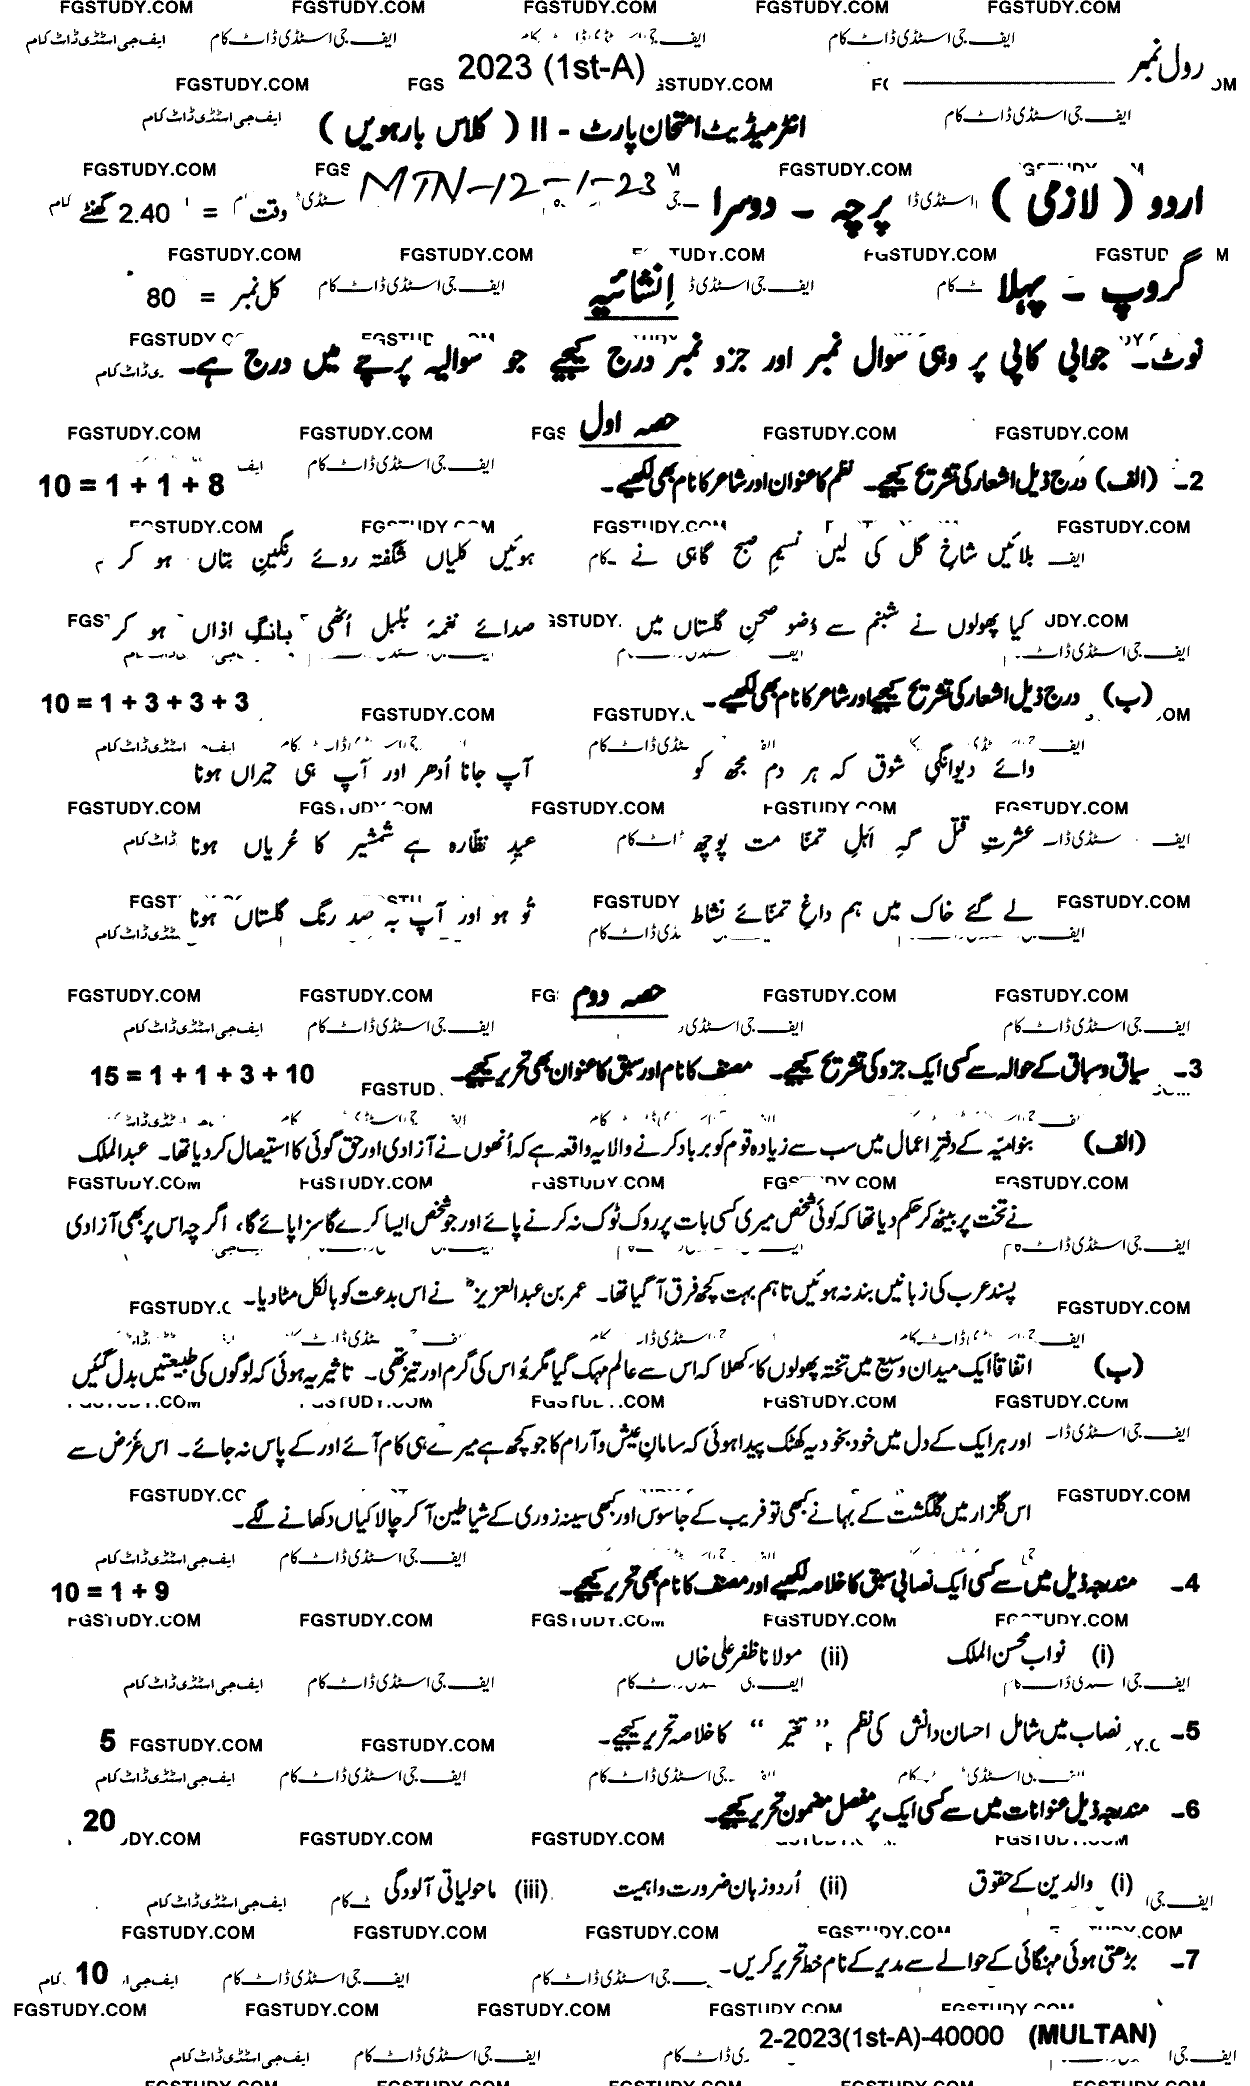 FGSTUDY.COM FGSTUDY.COM FGSTUDY.COM FGSTUDY.COM FGSTUDY.COM
رول نمبر
2023 (1st-A)
انٹرمیڈیٹ امتحان پارٹ - II ( کلاس بارہویں )
MTN-12-1-23
اردو ( لازمی ) پرچہ - دوسرا وقت = 2.40 گھنٹے
گروپ - پہلا اِنشائیہ کل نمبر = 80
نوٹ۔ جوابی کاپی پر وہی سوال نمبر اور جزو نمبر درج کیجیے جو سوالیہ پرچے میں درج ہے۔
حصہ اول
2۔ (الف) درج ذیل اشعار کی تشریح کیجیے۔ نظم کا عنوان اور شاعر کا نام بھی لکھیے۔ 10 = 1 + 1 + 8
بلائیں شاخِ گل کی لیں نسیمِ صبح گاہی نے ہوئیں کلیاں شگفتہ روئے رنگینِ بتاں ہو کر
کیا پھولوں نے شبنم سے وضو صحنِ گلستاں میں صدائے نغمۂ بُلبل اُٹھی بانگِ اذاں ہو کر
(ب) درج ذیل اشعار کی تشریح کیجیے اور شاعر کا نام بھی لکھیے۔ 10 = 1 + 3 + 3 + 3
وائے دیوانگیِ شوق کہ ہر دم مجھ کو آپ جانا اُدھر اور آپ ہی حیراں ہونا
عشرتِ قتل گہِ اہلِ تمنّا مت پوچھ عیدِ نظّارہ ہے شمشیر کا عُریاں ہونا
لے گئے خاک میں ہم داغِ تمنّائے نشاط تُو ہو اور آپ بہ صد رنگ گلستاں ہونا
حصہ دوم
3۔ سیاق وسباق کے حوالہ سے کسی ایک جزو کی تشریح کیجیے۔ مصنف کا نام اور سبق کا عنوان بھی تحریر کیجیے۔ 15 = 1 + 1 + 3 + 10
(الف) بنوامیّہ کے دفترِ اعمال میں سب سے زیادہ قوم کو برباد کرنے والا یہ واقعہ ہے کہ اُنھوں نے آزادی اور حق گوئی کا استیصال کر دیا تھا۔ عبدالملک
نے تخت پر بیٹھ کر حکم دیا تھا کہ کوئی شخص میری کسی بات پر روک ٹوک نہ کرنے پائے اور جو شخص ایسا کرے گا سزا پائے گا، اگرچہ اس پر بھی آزادی
پسند عرب کی زبانیں بند نہ ہوئیں تاہم بہت کچھ فرق آ گیا تھا۔ عمر بن عبدالعزیزؒ نے اس بدعت کو بالکل مٹا دیا۔
(ب) اتفاقاً ایک میدان وسیع میں تختہ پھولوں کا کھلا کہ اس سے عالم مہک گیا مگر بُو اس کی گرم اور تیز تھی۔ تاثیر یہ ہوئی کہ لوگوں کی طبیعتیں بدل گئیں
اور ہر ایک کے دل میں خود بخود یہ کھٹک پیدا ہوئی کہ سامانِ عیش و آرام کا جو کچھ ہے میرے ہی کام آئے اور کے پاس نہ جائے۔ اس غَرَض سے
اس گلزار میں گلگشت کے بہانے کبھی تو فریب کے جاسوس اور کبھی سینہ زوری کے شیاطین آ کر چالاکیاں دکھانے لگے۔
4۔ مندرجہ ذیل میں سے کسی ایک نصابی سبق کا خلاصہ لکھیے اور مصنف کا نام بھی تحریر کیجیے۔ 10 = 1 + 9
(i) نواب محسن الملک (ii) مولانا ظفر علی خاں
5۔ نصاب میں شامل احسان دانش کی نظم "تغیّر" کا خلاصہ تحریر کیجیے۔ 5
6۔ مندرجہ ذیل عنوانات میں سے کسی ایک پر مفصل مضمون تحریر کیجیے۔ 20
(i) والدین کے حقوق (ii) اُردو زبان ضرورت و اہمیت (iii) ماحولیاتی آلودگی
7۔ بڑھتی ہوئی مہنگائی کے حوالے سے مدیر کے نام خط تحریر کریں۔ 10
2-2023(1st-A)-40000 (MULTAN)